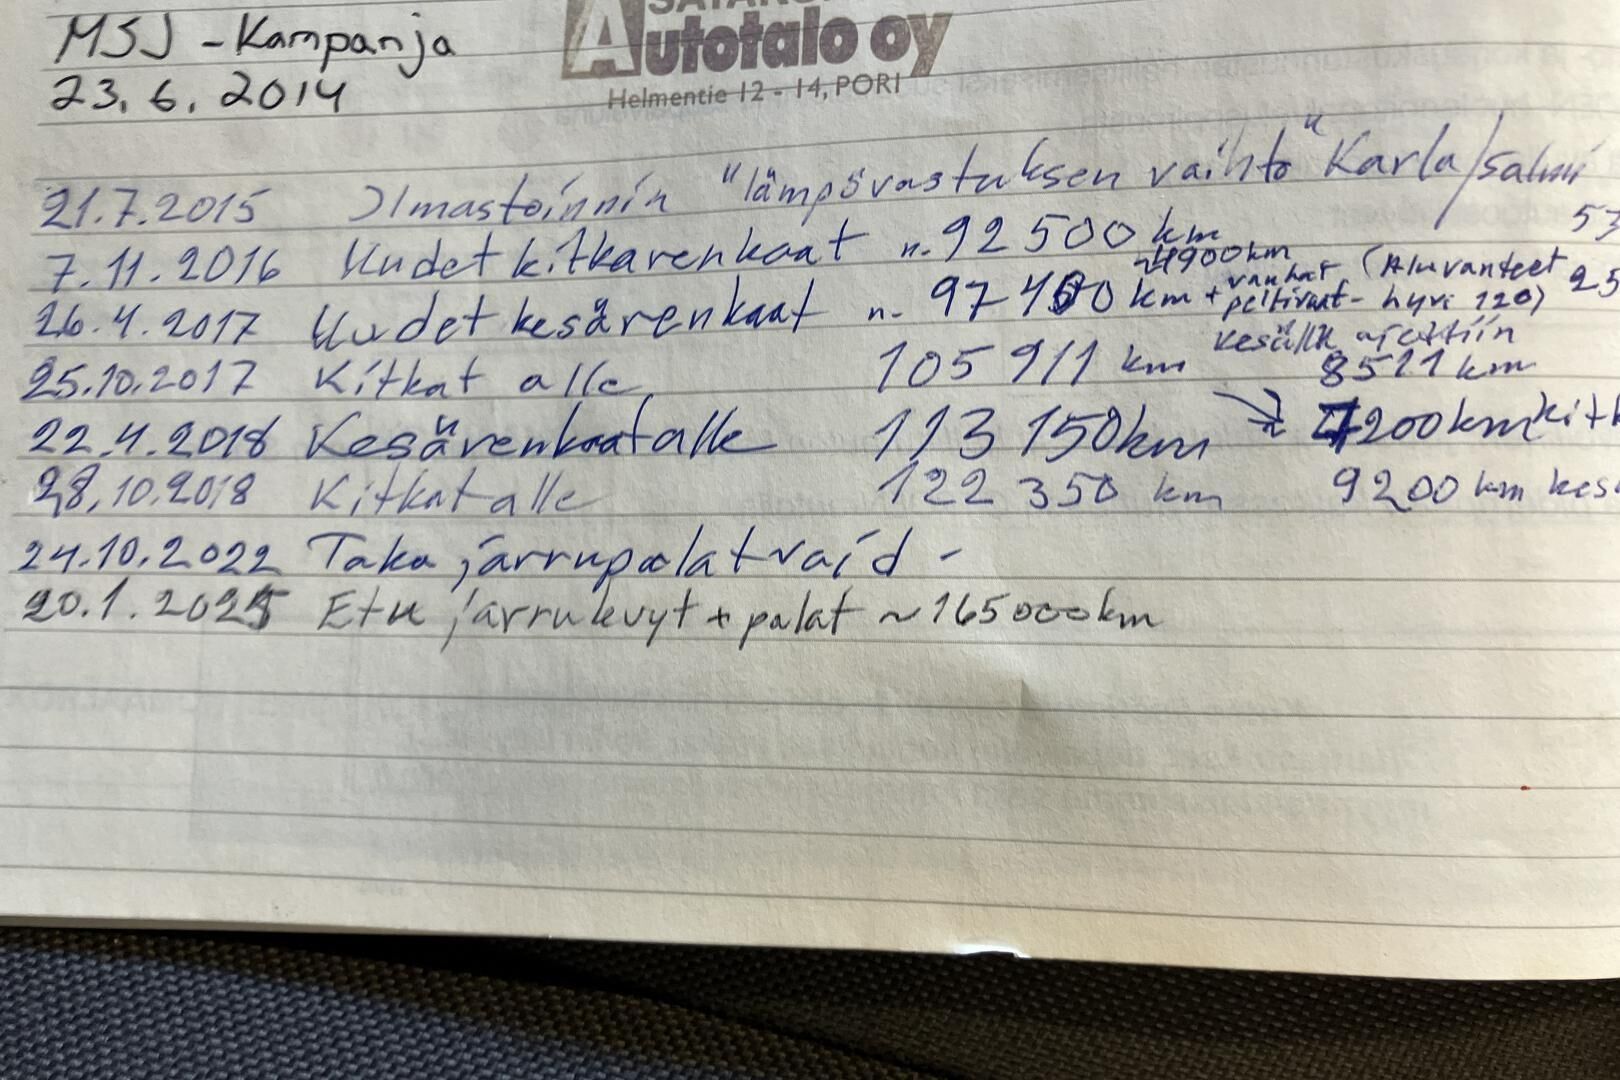 MSJ - Kampanja
23.6.2014
Autotalo oy
Helmentie 12 - 14, PORI
21.7.2015 Ilmastoinnin "lämpövastuksen vaihto" Karla/Salmi
7.11.2016 Uudet kitkarenkaat n. 92 500 km 53
~4900km
26.4.2017 Uudet kesärenkaat n. 97 400 km + vanhat peltivant- (Aluvanteet hyvi 120) 25
kesällä ajettiin
25.10.2017 Kitkat alle 105 911 km 8511 km
22.4.2018 Kesärenkaat alle 113 150km → 7200km kitk
28.10.2018 Kitkat alle 122 350 km 9200 km kes
24.10.2022 Taka jarrupalat vaid -
20.1.2025 Etu jarrulevyt + palat ~165000km